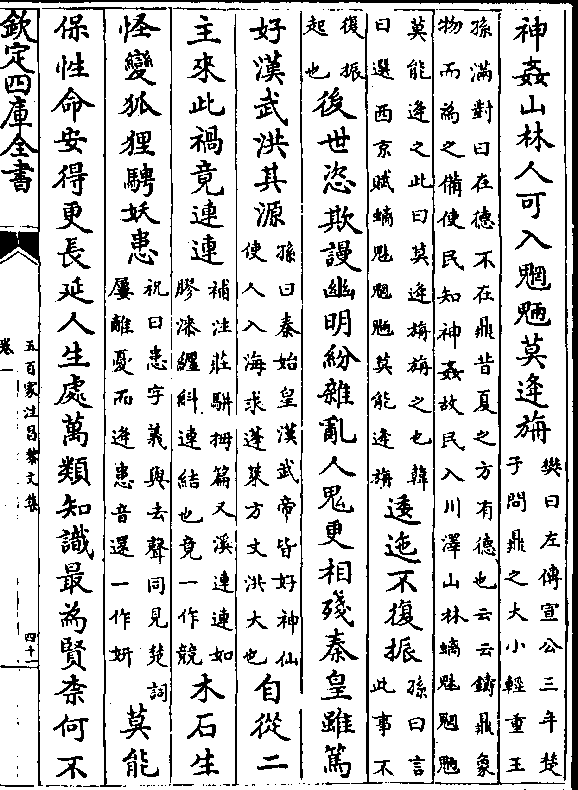 神姦山林人可入魍魎莫逢旃樊曰左傳宣公三年楚
子問鼎之大小輕重王
孫滿對曰在德不在鼎昔夏之方有德也云云鑄鼎象
物而為之備使民知神姦故民入川澤山林螭魅魍魎
莫能逢之此曰莫逢旃旃之也韓
曰選西京賦螭魅魍魎莫能逢旃逶迤不復振孫曰言
此事不
復振
起也後世恣欺謾幽明紛雜亂人鬼更相殘秦皇雖篤
好漢武洪其源孫曰秦始皇漢武帝皆好神仙
使人入海求蓬萊方丈洪大也自從二
主來此禍竟連連補注莊駢拇篇又溪連連如
膠漆纆糾連結也竟一作競木石生
怪變狐狸騁妖患祝曰患字義與去聲同見楚詞
屢離憂而逢患音還一作妍莫能
保性命安得更長延人生處萬類知識最為賢柰何不
欽定四庫全書
卷一
五百家注昌黎文集
四十二